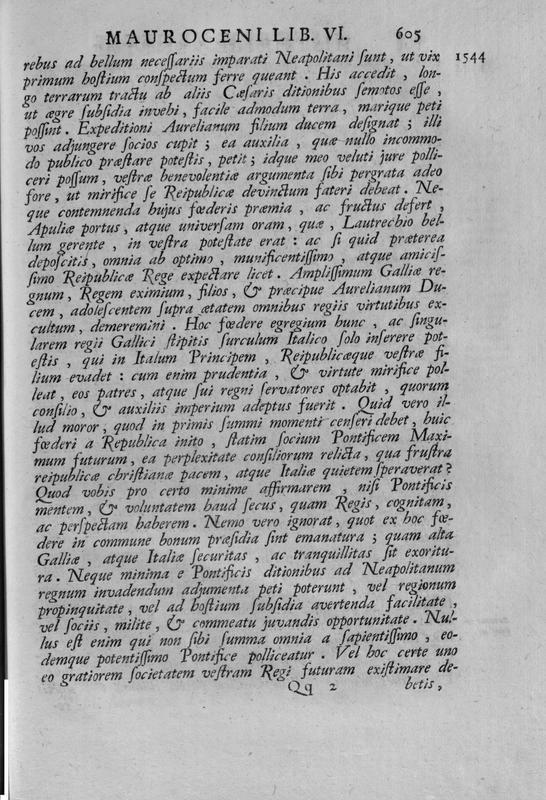 MAUROCENI LIB. VI. 605
rebus ad bellum neceſſariis imparati Neapolitani ſunt, ut vix 1544
primum hoſtium conſpectum ferre queant. His accedit, lon-
go terrarum tractu ab aliis Cæſaris ditionibus ſemotos eſſe,
ut ægre ſubſidia invehi, facile admodum terra, marique peti
poſſint. Expeditioni Aurelianum filium ducem deſignat; illi
vos adjungere ſocios cupit; ea auxilia, quæ nullo incommo-
do publico præſtare poteſtis, petit; idque meo veluti jure polli-
ceri poſſum, veſtræ benevolentiæ argumenta ſibi pergrata adeo
fore, ut mirifice ſe Reipublicæ devinctum fateri debeat. Ne-
que contemnenda hujus fœderis præmia, ac fructus defert,
Apuliæ portus, atque univerſam oram, quæ, Lautrechio bel-
lum gerente, in veſtra poteſtate erat: ac ſi quid præterea
depoſcitis, omnia ab optimo, munificentiſſimo, atque amiciſ-
ſimo Reipublicæ Rege expectare licet. Ampliſſimum Galliæ re-
gnum, Regem eximium, filios, & præcipue Aurelianum Du-
cem, adoleſcentem ſupra ætatem omnibus regiis virtutibus ex-
cultum, demeremini. Hoc fœdere egregium hunc, ac ſingu-
larem regii Gallici ſtipitis ſurculum Italico ſolo inſerere pot-
eſtis, qui in Italum Principem, Reipublicæque veſtræ fi-
lium evadet: cum enim prudentia, & virtute mirifice pol-
leat, eos patres, atque ſui regni ſervatores optabit, quorum
conſilio, & auxiliis imperium adeptus fuerit. Quid vero il-
lud moror, quod in primis ſummi momenti cenſeri debet, huic
fœderi a Republica inito, ſtatim ſocium Pontificem Maxi-
mum futurum, ea perplexitate conſiliorum relicta, qua fruſtra
reipublicæ chriſtianæ pacem, atque Italiæ quietem ſperaverat?
Quod vobis pro certo minime affirmarem, niſi Pontificis
mentem, & voluntatem haud ſecus, quam Regis, cognitam,
ac perſpectam haberem. Nemo vero ignorat, quot ex hoc fœ-
dere in commune bonum præſidia ſint emanatura; quam alta
Galliæ, atque Italiæ ſecuritas, ac tranquillitas ſit exoritu-
ra. Neque minima e Pontificis ditionibus ad Neapolitanum
regnum invadendum adjumenta peti poterunt, vel regionum
propinquitate, vel ad hoſtium ſubſidia avertenda facilitate,
vel ſociis, milite, & commeatu juvandis opportunitate. Nul-
lus eſt enim qui non ſibi ſumma omnia a ſapientiſſimo, eo-
demque potentiſſimo Pontifice polliceatur. Vel hoc certe uno
eo gratiorem ſocietatem veſtram Regi futuram exiſtimare de-
Qq 2 betis,